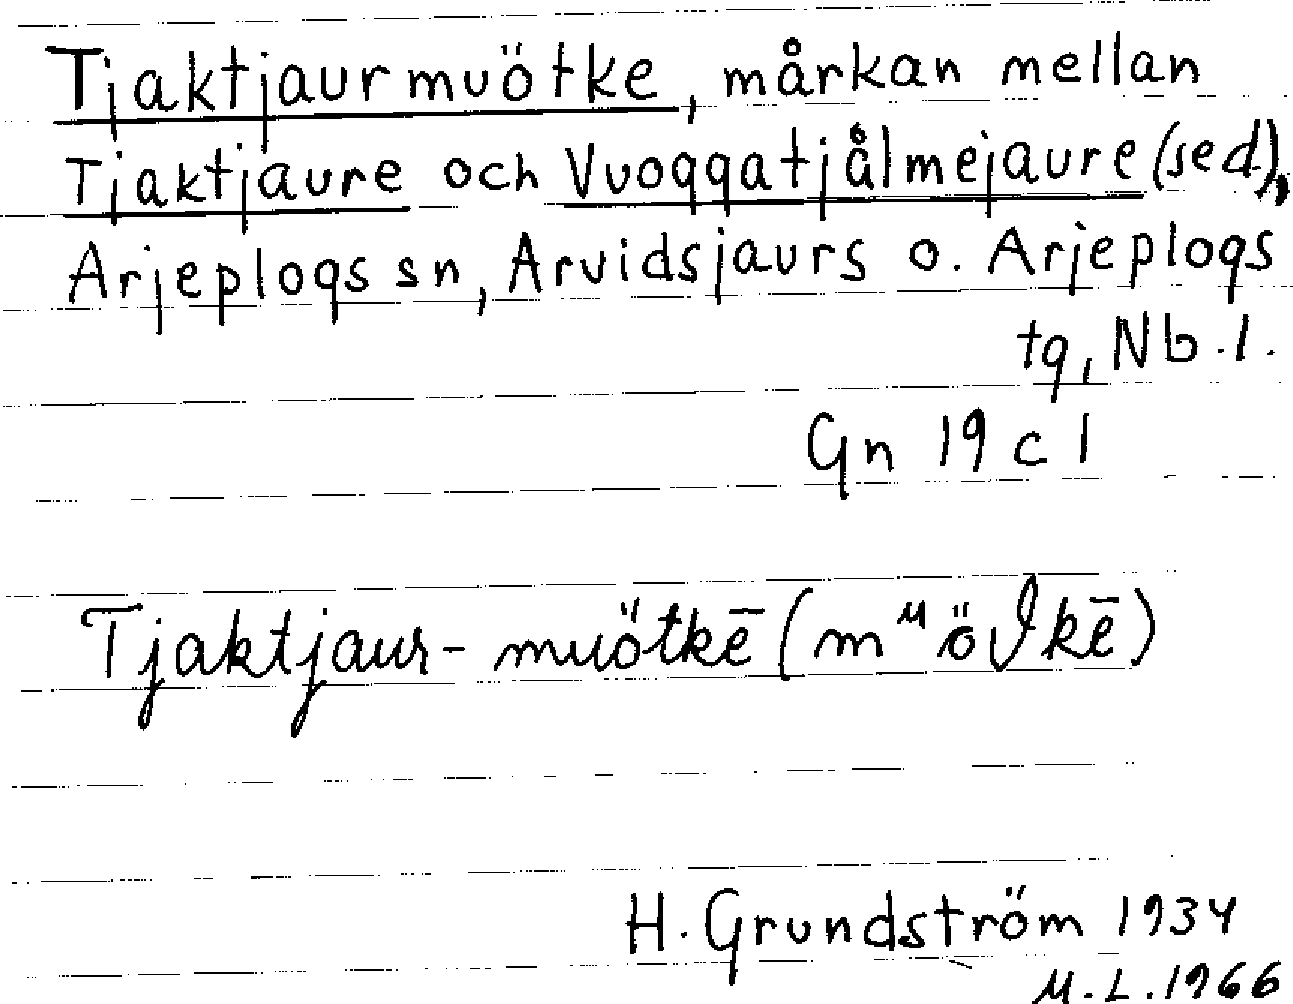 Tjaktjaurmuötke, mårkan mellan
Tjaktjaure och Vuoggatjålmejaure (sed),
Arjeplogs sn, Arvidsjaurs o. Arjeplogs
tg, Nb. l.
Gn 19 c 1
Tjaktjaur-muötkē (mᵘöϑkē)
H. Grundström 1934
M.L.1966